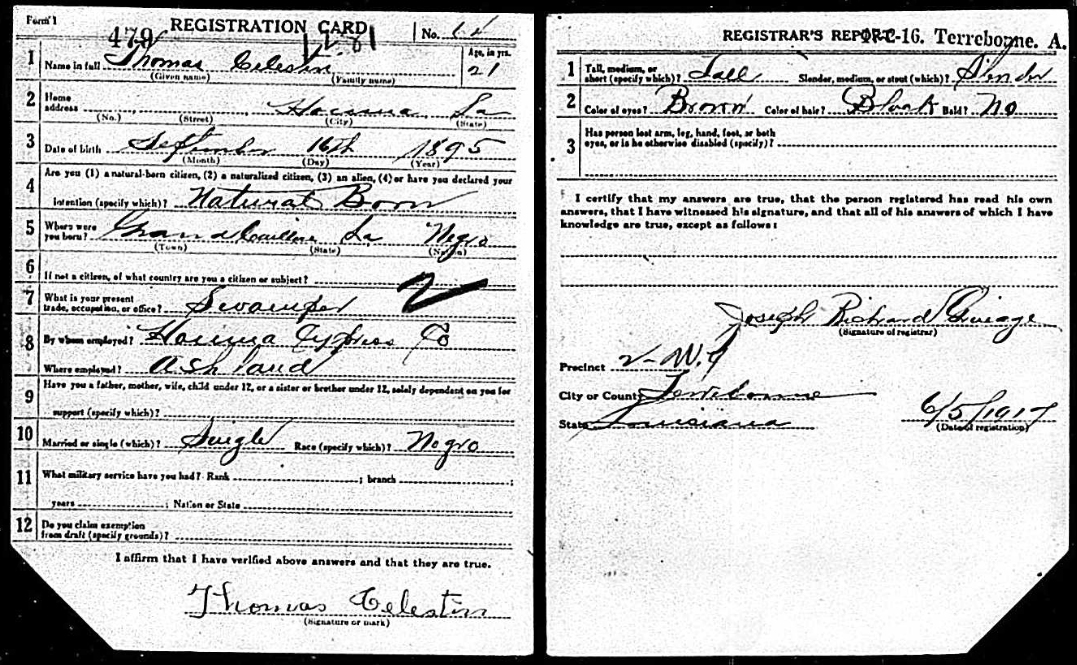 Form 1
REGISTRATION CARD No.
479
1 Name in full Thomas Celestin Age, in yrs. 21
(Given name) (Family name)
2 Home address Houma La
(No.) (Street) (City) (State)
3 Date of birth September 16th 1895
(Month) (Day) (Year)
4 Are you (1) a natural-born citizen, (2) a naturalized citizen, (3) an alien, (4) or have you declared your
intention (specify which)? Natural Born
5 Where were you born? Grand Caillou La Negro
(Town) (State) (Nation)
6 If not a citizen, of what country are you a citizen or subject?
7 What is your present trade, occupation, or office? Swamper 2
8 By whom employed? Houma Cypress Co
Where employed? Ashland
9 Have you a father, mother, wife, child under 12, or a sister or brother under 12, solely dependent on you for
support (specify which)?
10 Married or single (which)? Single Race (specify which)? Negro
11 What military service have you had? Rank ; branch ;
years ; Nation or State
12 Do you claim exemption from draft (specify grounds)?
I affirm that I have verified above answers and that they are true.
Thomas Celestin
(Signature or mark)
REGISTRAR'S REPORT -16. Terrebonne. A.
1 Tall, medium, or short (specify which)? Tall Slender, medium, or stout (which)? Slender
2 Color of eyes? Brown Color of hair? Black Bald? No
3 Has person lost arm, leg, hand, foot, or both
eyes, or is he otherwise disabled (specify)?
I certify that my answers are true, that the person registered has read his own
answers, that I have witnessed his signature, and that all of his answers of which I have
knowledge are true, except as follows:
Joseph Richard
(Signature of registrar)
Precinct 2-W.9
City or County Terrebonne
State Louisiana 6/5/1917
(Date of registration)